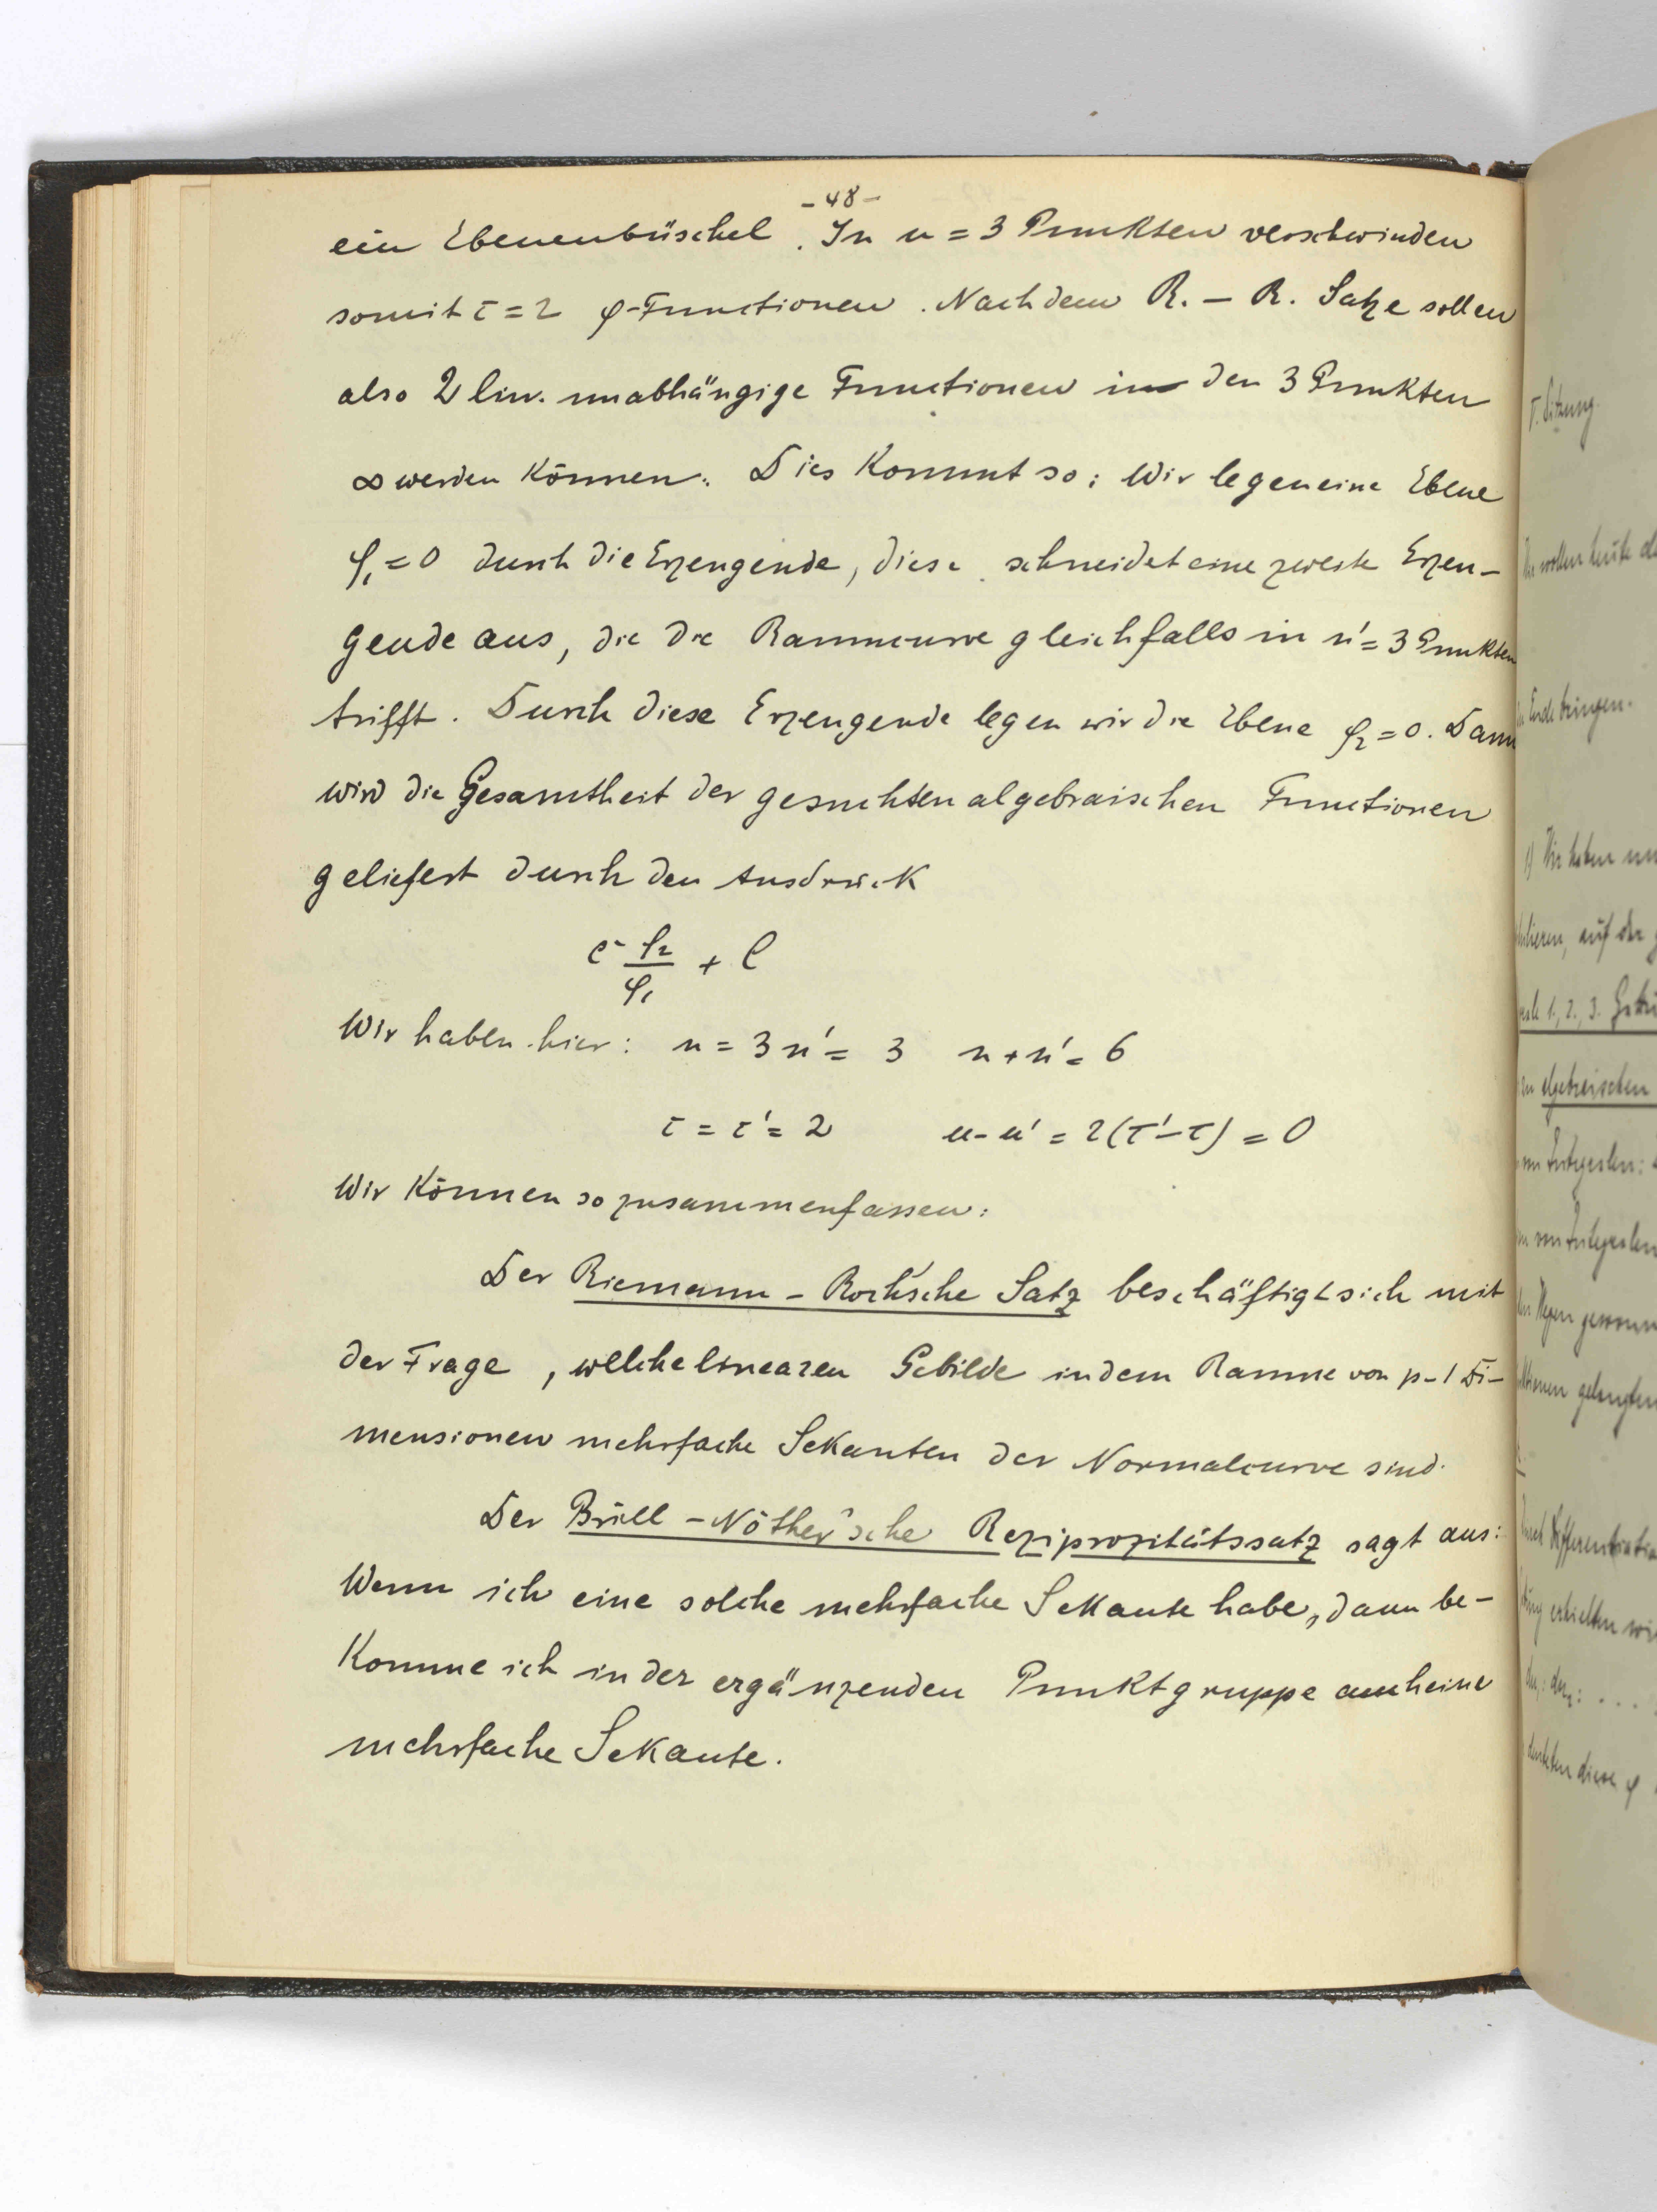 -48-
ein Ebenenbüschel. In n = 3 Punkten verschwinden
somit τ = 2 φ-Functionen. Nach dem R. – R. Satze sollen
also 2 lin. unabhängige Functionen in den 3 Punkten
∞ werden können. Dies kommt so: Wir legen eine Ebene
φ₁ = 0 durch die Erzeugende, diese schneidet eine zweite Erzeu-
gende aus, die die Raumcurve gleichfalls in n' = 3 Punkten
trifft. Durch diese Erzeugende legen wir die Ebene φ₂ = 0. Dann
wird die Gesamtheit der gesuchten algebraischen Functionen
geliefert durch den Ausdruck
c φ₂/φ₁ + C
Wir haben hier: n = 3 n' = 3 n + n' = 6
τ = τ' = 2 n - n' = 2(τ' - τ) = 0
Wir können so zusammenfassen:
Der Riemann – Roch'sche Satz beschäftigt sich mit
der Frage, welche linearen Gebilde in dem Raume von p-1 Di-
mensionen mehrfache Sekanten der Normalcurve sind.
Der Brill – Nöther'sche Reziprozitätssatz sagt aus:
Wenn ich eine solche mehrfache Sekante habe, dann be-
komme ich in der ergänzenden Punktgruppe auch eine
mehrfache Sekante.
Sitzung.
wollen heute
Ende bringen.
1) Wir haben
auf der
1., 2., 3.
algebraischen
Integralen:
von Integralen
gelangten
erhielten
diese φ